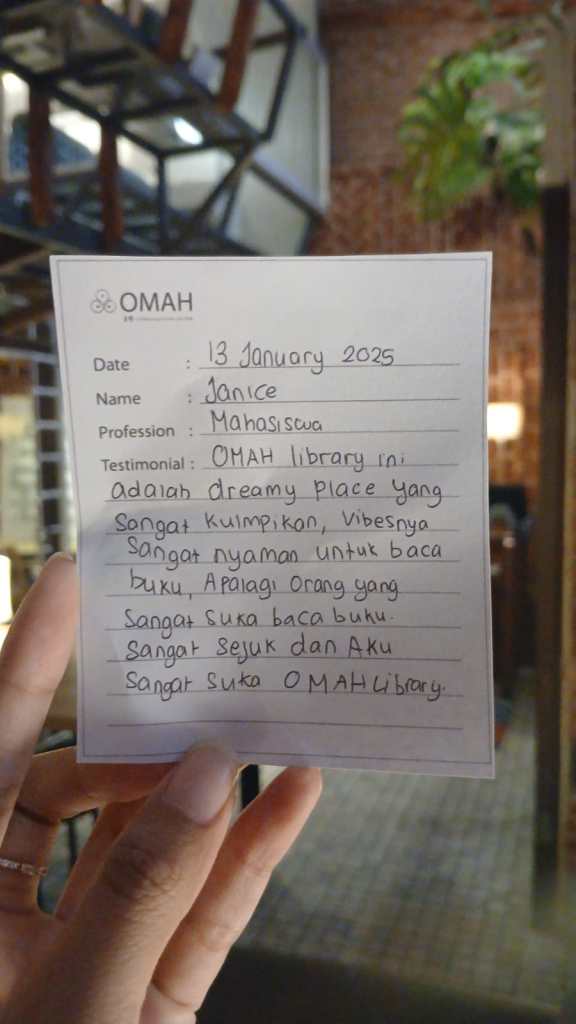 OMAH
Date : 13 January 2025
Name : Janice
Profession : Mahasiswa
Testimonial : OMAH library ini
adalah dreamy place yang
Sangat kuimpikan, Vibesnya
Sangat nyaman untuk baca
buku, Apalagi Orang yang
Sangat suka baca buku.
Sangat Sejuk dan Aku
Sangat Suka OMAH Library.